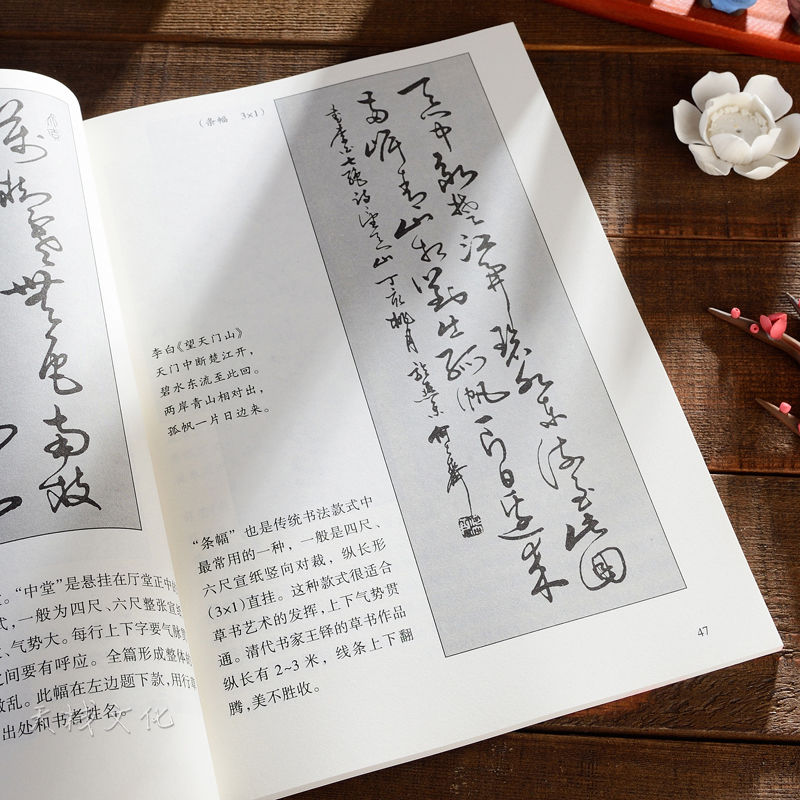 萬樹寒無色
南枝
(条幅 3×1)
天门中断楚江開碧水东流至此回
两岸青山相對出孤帆一片日邊来
李白《望天门山》
天门中断楚江开，
碧水东流至此回。
两岸青山相对出，
孤帆一片日边来。
“条幅”也是传统书法款式中
最常用的一种，一般是四尺、
六尺宣纸竖向对裁，纵长形
(3×1)直挂。这种款式很适合
草书艺术的发挥，上下气势贯
通。清代书家王铎的草书作品
纵长有2~3米，线条上下翻
腾，美不胜收。
47
。“中堂”是悬挂在厅堂正中的
式，一般为四尺、六尺整张宣
、气势大。每行上下字要气脉
之间要有呼应。全篇形成整体的
散乱。此幅在左边题下款，用行
出处和书者姓名。